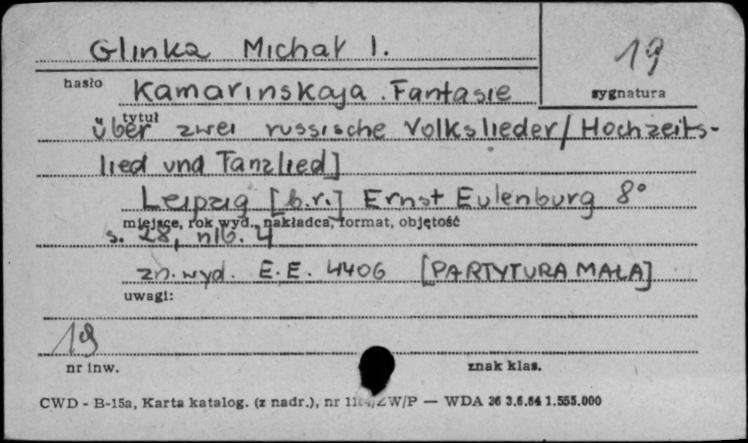 Glinka Michał I.
19
hasło
sygnatura
Kamarinskaja. Fantasie
tytuł
über zwei russische Volkslieder/Hochzeits-
lied und Tanzlied]
Leipzig [b.r.] Ernst Eulenburg 8°
miejsce, rok wyd., nakładca, format, objętość
s. 28, nlb. 4
zn. wyd. E.E. 4406 [PARTYTURA MAŁA]
uwagi:
19
nr inw.
znak klas.
CWD - B-15a, Karta katalog. (z nadr.), nr /ZW/P — WDA 36 3.6.64 1.555.000